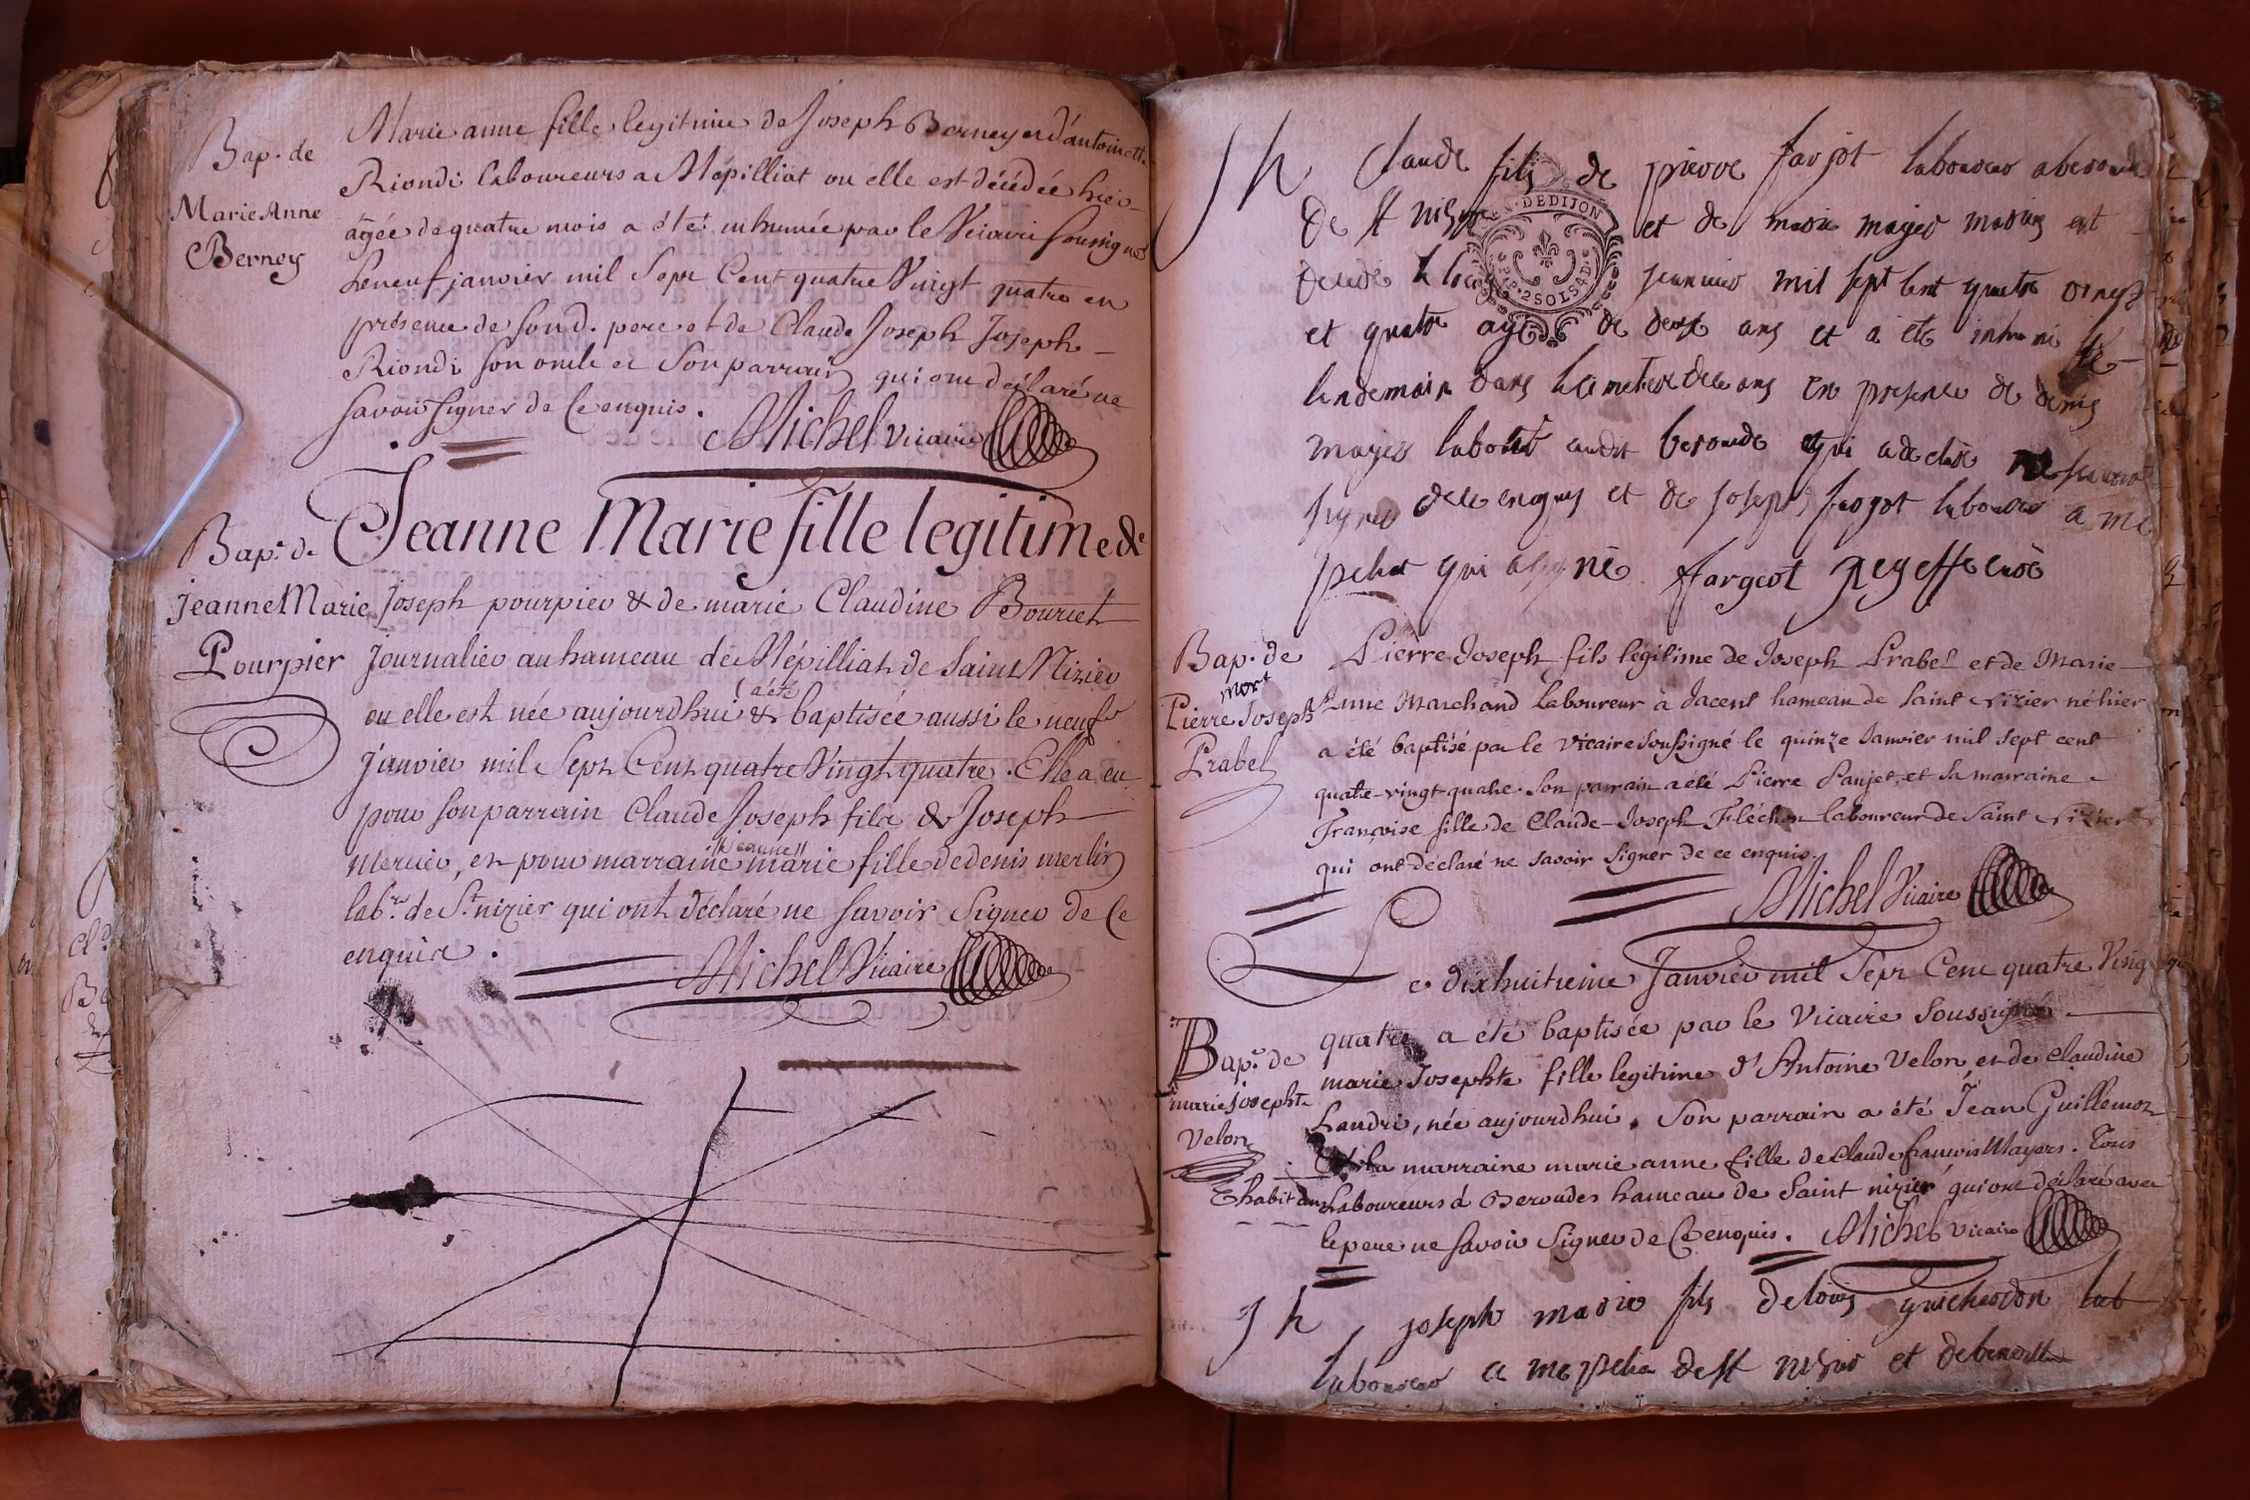 Bap. de
Marie Anne
Berney
Marie anne fille legitime de Joseph Berney et d'antoinette
Riondi laboureurs a Mépilliat ou elle est décédée hier
agée de quatre mois a été inhumée par le Vicaire soussigné
le neuf janvier mil Sept Cent quatre Vingt quatre en
présence de son d. pere et de Claude Joseph Joseph
Riondi son oncle et Son parrain qui ont déclaré ne
savoir signer de Ce enquis.
Michel Vicaire
Bap.e de
Jeanne Marie
Pourpier
Jeanne Marie fille legitime de
Joseph pourpier & de marie Claudine Bourcet
Journalier au hameau de Mépilliat de Saint Nizier
ou elle est née aujourdhui & a été baptisée aussi le neuf
Janvier mil Sept Cent quatre Vingt quatre. Elle a eu
pour son parrain Claude Joseph fils de Joseph
Mercier, et pour marraine jeanne marie fille de denis merlin
lab.r de S.t nizier qui ont déclaré ne savoir Signer de Ce
enquis.
Michel Vicaire
Jh Claude fils de pierre farjot laboureur a beroude
de st nizier et de marie mayer maries est
decede le janvier mil sept cent quatre vingt
et quatre age de deux ans et a ete inhumé le
lendemain dans le cimetiere ceans en presence de denis
mayer labour audit beroude qui a declaré ne scavoir
signer de ce enquis et de joseph farjot laboureur a me
peliat qui a signé fargeot
DE DIJON
2 SOLS 4 D.
Bap. de
mort
Pierre Joseph
Prabel
Pierre Joseph fils légitime de Joseph Prabel et de Marie
Anne Marchand Laboureur à Jacent hameau de Saint Nizier né hier
a été baptisé par le Vicaire Soussigné le quinze Janvier mil sept cent
quatre-vingt quatre. Son parrain a été Pierre Panjet, et Sa marraine
Françoise fille de Claude-Joseph Fléchon laboureur de Saint Nizier
qui ont déclaré ne savoir Signer de ce enquis.
Michel Vicaire
Bap.e de
marie Josephte
Velon
Le dixhuitieme Janvier mil Sept Cent quatre Vingt
quatre a été baptisée par le Vicaire Soussigné
marie Josephte fille legitime d'Antoine Velon, et de Claudine
Landri, née aujourdhui. Son parrain a été Jean Guillemot
Et la marraine marie anne fille de Claude francois Mayers. Tous
habitans Laboureurs à Beroudes hameau de Saint nizier qui ont déclaré avec
le pere ne Savoir Signer de Ce enquis. Michel Vicaire
Jh joseph marie fils de louis guichardon lab
laboureur a mepelia de st nizier et de benoitte